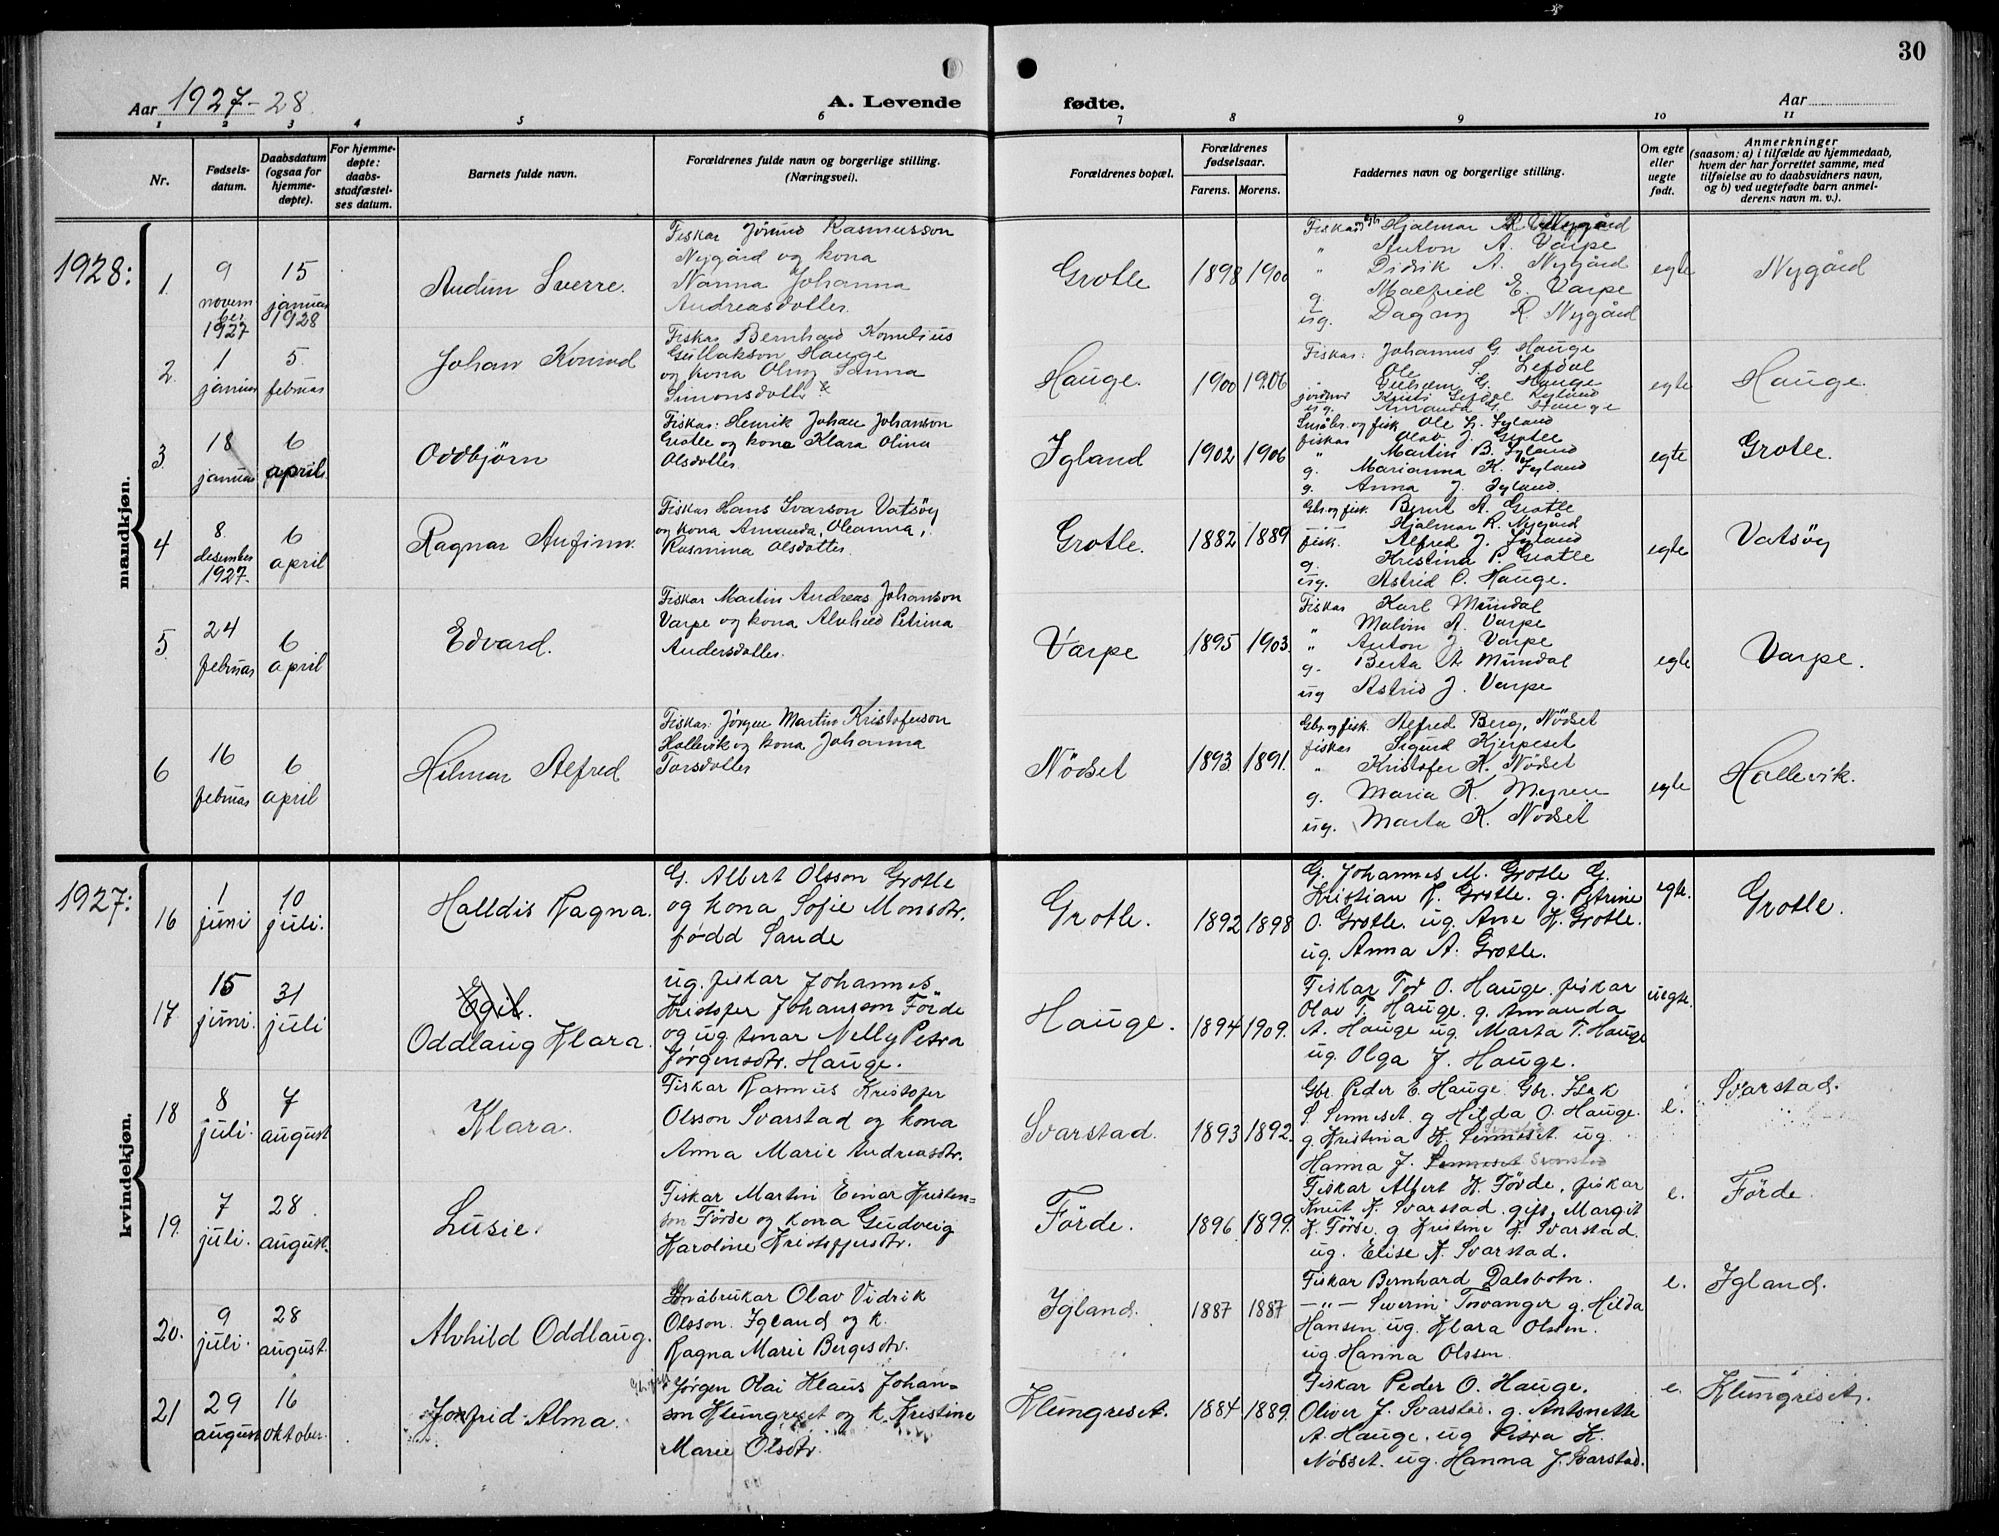 30
Aar 1927-28.
A. Levende fødte.
Aar
1 2 3 4 5 6 7 8 9 10 11
Nr.
Fødselsdatum.
Daabsdatum (ogsaa for hjemmedøpte).
For hjemmedøpte: daabsstadfæstelses datum.
Barnets fulde navn.
Forældrenes fulde navn og borgerlige stilling. (Næringsvei).
Forældrenes bopæl.
Forældrenes fødselsaar.
Farens. Morens.
Faddernes navn og borgerlige stilling.
Om egte eller uegte født.
Anmerkninger (saasom: a) i tilfælde av hjemmedaab, hvem der har forrettet samme, med tilføielse av to daabsvidners navn, og b) ved uegtefødte barn anmelderens navn m. v.).
mandkjøn.
1928:
1. 9 november 1927
15 januar 1928
Audun Sverre.
Fiskar Rasmusson
Nygård og kona
Nanna Johanna
Andreasdotter.
Grotle 1898 1900
Hjalmar R. Nygård
" Anton A. Varpe
" Didrik A. Nygård
g. Malfred E. Varpe
ug. Dagny R. Nygård
egte Nygård
2. 1 januar
5. februar
Johan Konrad
Fiskar Bernhard Kornelius
Gullakson Hauge
og kona Olny Sanna
Simonsdotter
Hauge. 1900 1906
Fiskar: Johannes G. Hauge
Ole S. Lefdal
G. Hauge
Amanda G. Hauge
egte Hauge.
3. 18 januar
6 april
Oddbjørn
Fiskar: Henrik Johan Johanson
Grotle og kona Klara Olina
Olsdotter.
Igland 1902 1906
Småbr. og fisk Ole L. Igland
fiskar Olav J. Grotle
" Martin B. Igland
g. Marianna K. Igland
g. Anna J. Igland.
egte Grotle.
4 8. desember 1927.
6 april
Ragnar Anfinn.
Fiskar Hans Ivarson Vatsöy
og kona Amanda, Oleanna,
Rasmina Olsdotter.
Grotle. 1882 1889
Gbr. og fisk. Bernt A. Grotle
-"- Hjalmar R. Nygård
fisk. Alfred J. Igland
g. Kristina P. Grotle
ug. Astrid O. Hauge.
egte Vatsöy
5. 24 februar
6 april
Edvard.
Fiskar Martin Andreas Johanson
Varpe og kona Alvhild Petrina
Andersdotter.
Varpe 1895 1903.
Fiskar Karl Mundal
" Malvin A. Varpe
" Anton J. Varpe
g. Berta A. Mundal
ug Astrid J. Varpe
egte Varpe.
6 16 februar
6 april
Hilmar Alfred
Fiskar: Jørgen Martin Kristoferson
Hallevik og kona Johanna
Torsdotter
Nödset 1893. 1891.
Gbr. og fisk. Alfred Berg, Nödset
fiskar Sigurd Kjerpeset
" Kristofer K. Nödset
g. Maria K. Myren
ug. Marta K. Nödset
egte Hallevik.
kvindekjøn.
1927:
16 1 juni
10 juli.
Halldis Ragna.
G. Albert Olsson Grotle
og kona Sofie Monsdtr.
född Sande
Grotle. 1892 1898
G. Johannes M. Grotle G.
Kristian K. Grotle. g. Petrine
O. Grotle. ug. Ane K. Grotle.
ug. Anna A. Grotle.
egte. Grotle.
17. 15 juni.
31 juli
Egil.
Oddlaug Klara.
ug. fiskar Johannes
Kristofer Johanson Förde
og ug. tenar Nelly Petra
Jörgensdtr. Hauge.
Hauge. 1894 1909.
Fiskar Tor O. Hauge. fiskar
Olav T. Hauge. g. Amanda
A. Hauge ug. Marta T. Hauge
ug. Olga J. Hauge.
uegte.
18 8 juli.
7 august
Klara.
Fiskar Rasmus Kristofer
Olsson Svarstad og kona
Anna Marie Andreasdtr.
Svarstad. 1893 1892.
Gbr. Peder E. Hauge. Gbr. Isak
S. Senneset g Hilda O. Hauge.
g. Kristina K. Senneset. ug.
Hanna J. Senneset Svarstad
e. Svarstad.
19. 7 juli.
28. august.
Lusie.
Fiskar Martin Einar Kristen-
son Förde og kona Gudveig
Karoline Kristoffersdtr.
Förde. 1896 1899.
Fiskar Albert K. Förde, fiskar
Knut K. Svarstad. gift, Margit
K. Förde. g Kristine K. Svarstad.
ug. Elise K. Svarstad.
e. Förde.
20. 9 juli.
28 august.
Alvhild Oddlaug.
Småbrukar Olav Vidrik
Olsson. Igland og k.
Ragna Marie Bergesdtr.
Igland. 1887 1887
Fiskar Bernhard Dalsbotn.
-"- Severin Torvanger g. Hilda
Hansen ug. Klara Olsen.
ug. Hanna Olsen.
e. Igland.
21 29 august
16 oktober.
Jonfrid Alma.
Jörgen Olai Klaus Johan-
son Klungreset og k. Kristine
Marie Olsdtr.
Klungreset. 1884 1889.
Fiskar Peder O. Hauge.
Oliver J. Svarstad. g. Antonette
A. Hauge. ug Petra K.
Nösset. ug. Hanna J. Svarstad.
e. Klungreset.